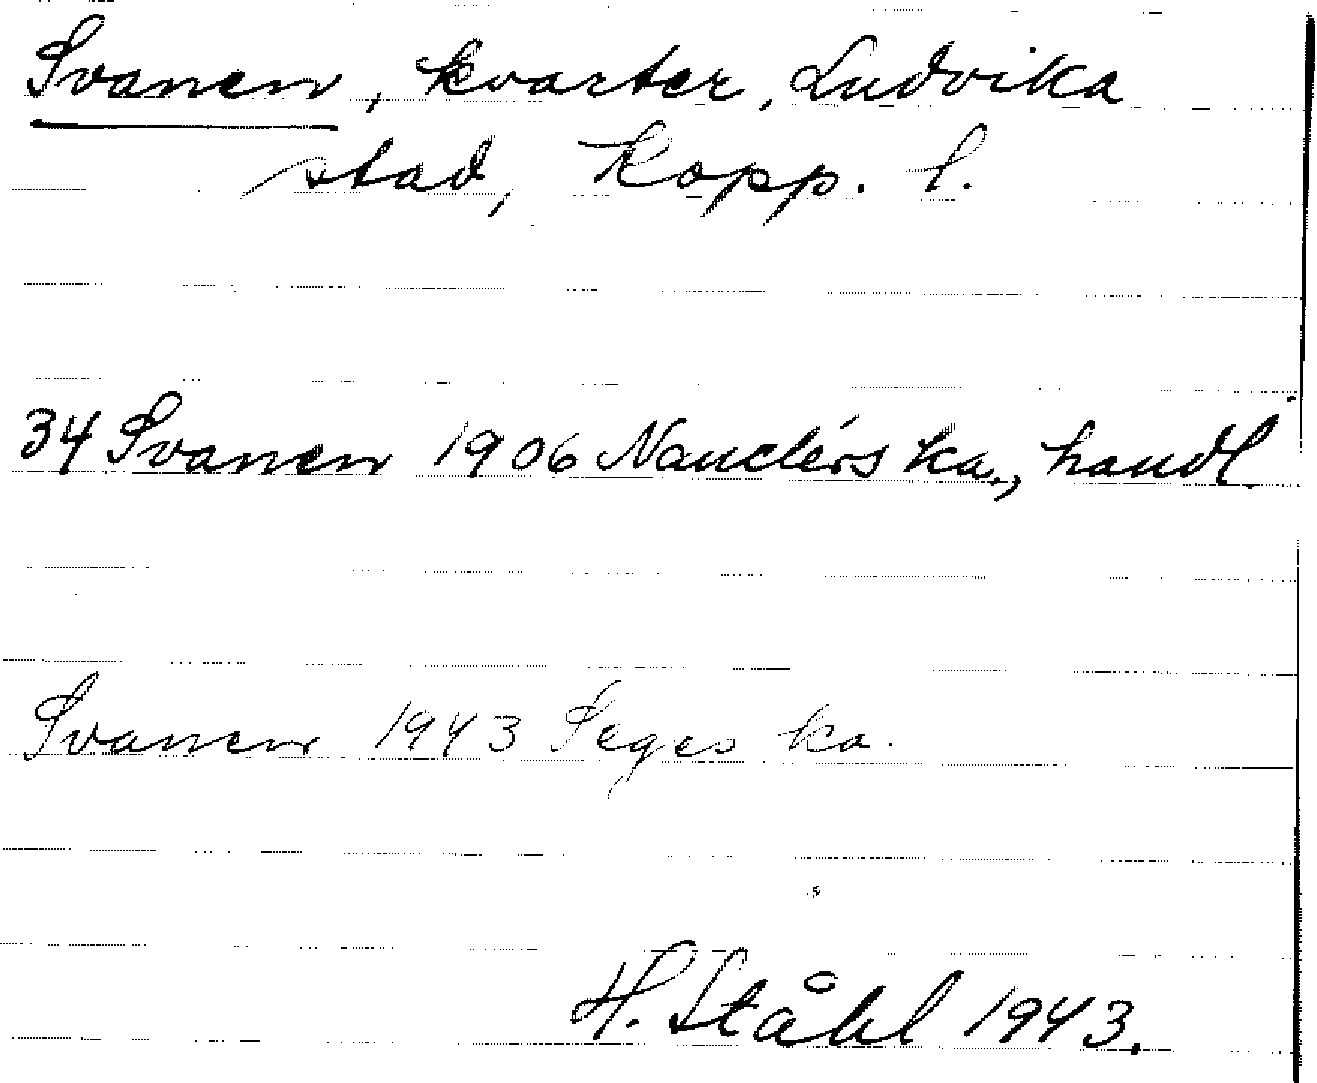 Svanen, kvarter, Ludvika
stad, Kopp. l.
34 Svanen 1906 Nauclérs ka., handl.
Svanen 1943 Seges ka.
H. Ståhl 1943.